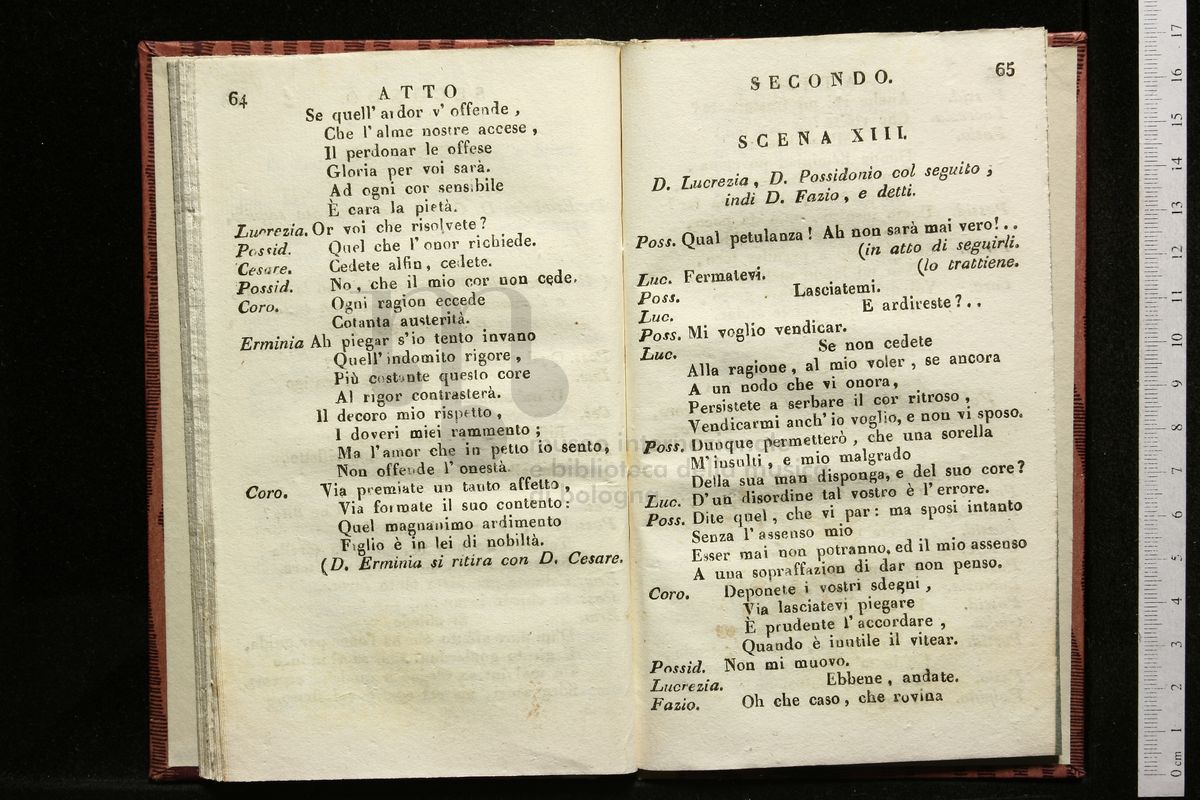 64
ATTO
Se quell' ardor v' offende ,
Che l' alme nostre accese ,
Il perdonar le offese
Gloria per voi sarà.
Ad ogni cor sensibile
È cara la pietà.
Lucrezia. Or voi che risolvete ?
Possid. Quel che l' onor richiede.
Cesare. Cedete alfin, cedete.
Possid. No, che il mio cor non cede.
Coro. Ogni ragion eccede
Cotanta austerità.
Erminia Ah piegar s'io tento invano
Quell' indomito rigore ,
Più costante questo core
Al rigor contrasterà.
Il decoro mio rispetto ,
I doveri miei rammento ;
Ma l'amor che in petto io sento,
Non offende l' onestà.
Coro. Via premiate un tanto affetto ,
Via formate il suo contento :
Quel magnanimo ardimento
Figlio è in lei di nobiltà.
(D. Erminia si ritira con D. Cesare.
SECONDO.
65
SCENA XIII.
D. Lucrezia, D. Possidonio col seguito ;
indi D. Fazio, e detti.
Poss. Qual petulanza ! Ah non sarà mai vero!..
(in atto di seguirli.
Luc. Fermatevi.
(lo trattiene.
Poss. Lasciatemi.
Luc. E ardireste ? . .
Poss. Mi voglio vendicar.
Luc. Se non cedete
Alla ragione, al mio voler, se ancora
A un nodo che vi onora,
Persistete a serbare il cor ritroso ,
Vendicarmi anch' io voglio, e non vi sposo.
Poss. Dunque permetterò, che una sorella
M' insulti, e mio malgrado
Della sua man disponga, e del suo core ?
Luc. D' un disordine tal vostro è l' errore.
Poss. Dite quel, che vi par : ma sposi intanto
Senza l' assenso mio
Esser mai non potranno, ed il mio assenso
A una sopraffazion di dar non penso.
Coro. Deponete i vostri sdegni ,
Via lasciatevi piegare
È prudente l' accordare ,
Quando è inutile il vitear.
Possid. Non mi muovo.
Lucrezia. Ebbene, andate.
Fazio. Oh che caso, che rovina
museo internazionale
e biblioteca della musica
di bologna
0 cm 1 2 3 4 5 6 7 8 9 10 11 12 13 14 15 16 17